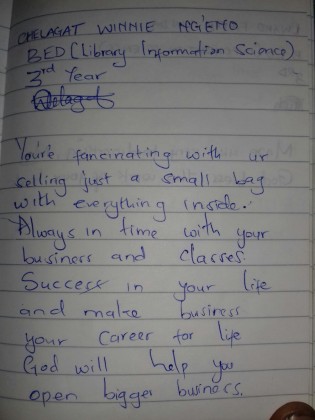 CHELAGAT WINNIE NG'ENO
BED (Library Information Science)
3rd Year
You're fancinating with ur
selling just a small bag
with everything inside.
Always in time with your
business and classes.
Success in your life
and make business
your career for life
God will help you
open bigger business.